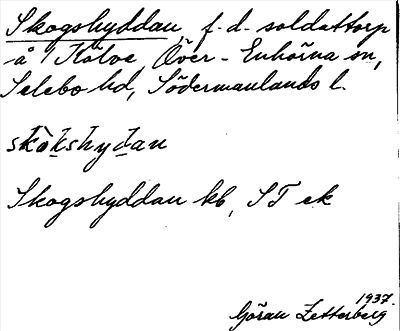 Skogshyddan, f. d. soldattorp
å Kölve, Över-Enhörna sn,
Selebo hd, Södermanlands l.
skòkshydan
Skogshyddan kb, ST ek
1937.
Göran Zetterberg